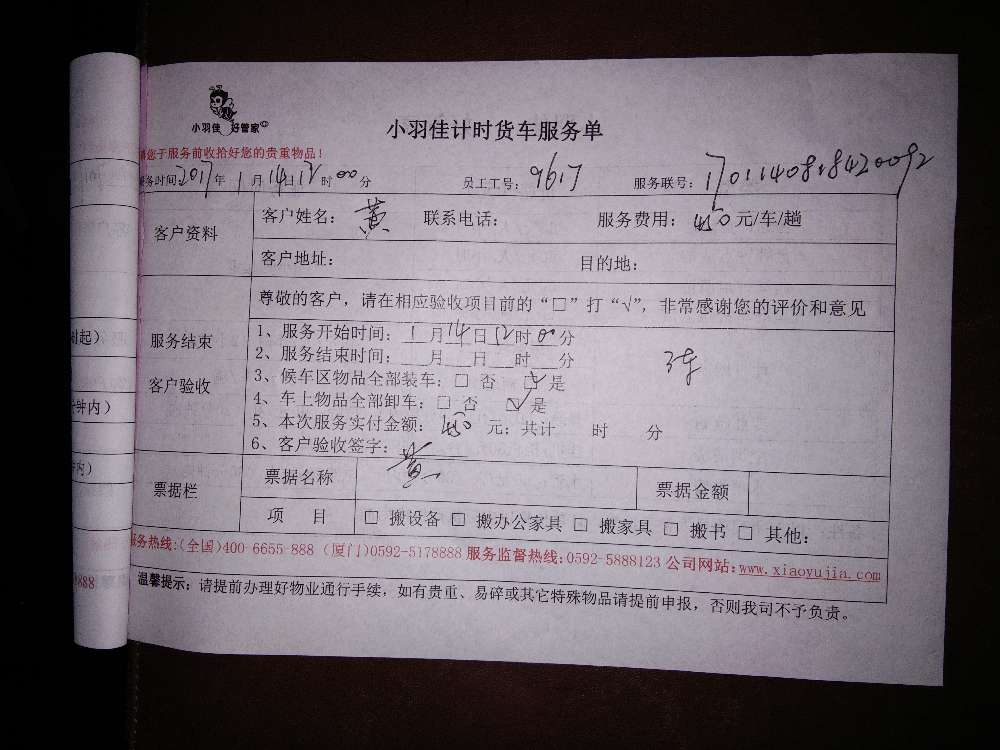 小羽佳 好管家
小羽佳计时货车服务单
请您于服务前收拾好您的贵重物品！
服务时间:2017年1月14日12时00分 员工工号: 9617 服务联号: 1701140818420092
客户资料 客户姓名: 黄 联系电话: 服务费用: 450元/车/趟
客户地址: 目的地:
尊敬的客户，请在相应验收项目前的“□”打“√”，非常感谢您的评价和意见
服务结束
客户验收
1、服务开始时间: 1月14日12时00分
2、服务结束时间: 月 日 时 分
3、候车区物品全部装车: □ 否 ☑ 是
4、车上物品全部卸车: □ 否 ☑ 是
5、本次服务实付金额: 450 元; 共计 时 分
6、客户验收签字: 黄
票据栏 票据名称 票据金额
项 目 □ 搬设备 □ 搬办公家具 □ 搬家具 □ 搬书 □ 其他:
服务热线:(全国)400-6655-888 (厦门)0592-5178888 服务监督热线:0592-5888123 公司网站:www.xiaoyujia.com
温馨提示: 请提前办理好物业通行手续，如有贵重、易碎或其它特殊物品请提前申报，否则我司不予负责。
时起）
分钟内）
内）
888